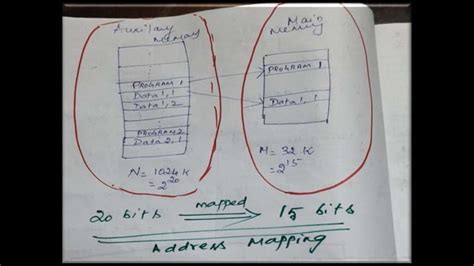 Auxiliary
Memory
PROGRAM 1
Data 1, 1
Data 1, 2
PROGRAM 2
Data 2, 1
N = 1024 K
= 2^20
Main
Memory
PROGRAM 1
Data 1, 1
M = 32 K
= 2^15
20 bits mapped 15 bits
Address Mapping